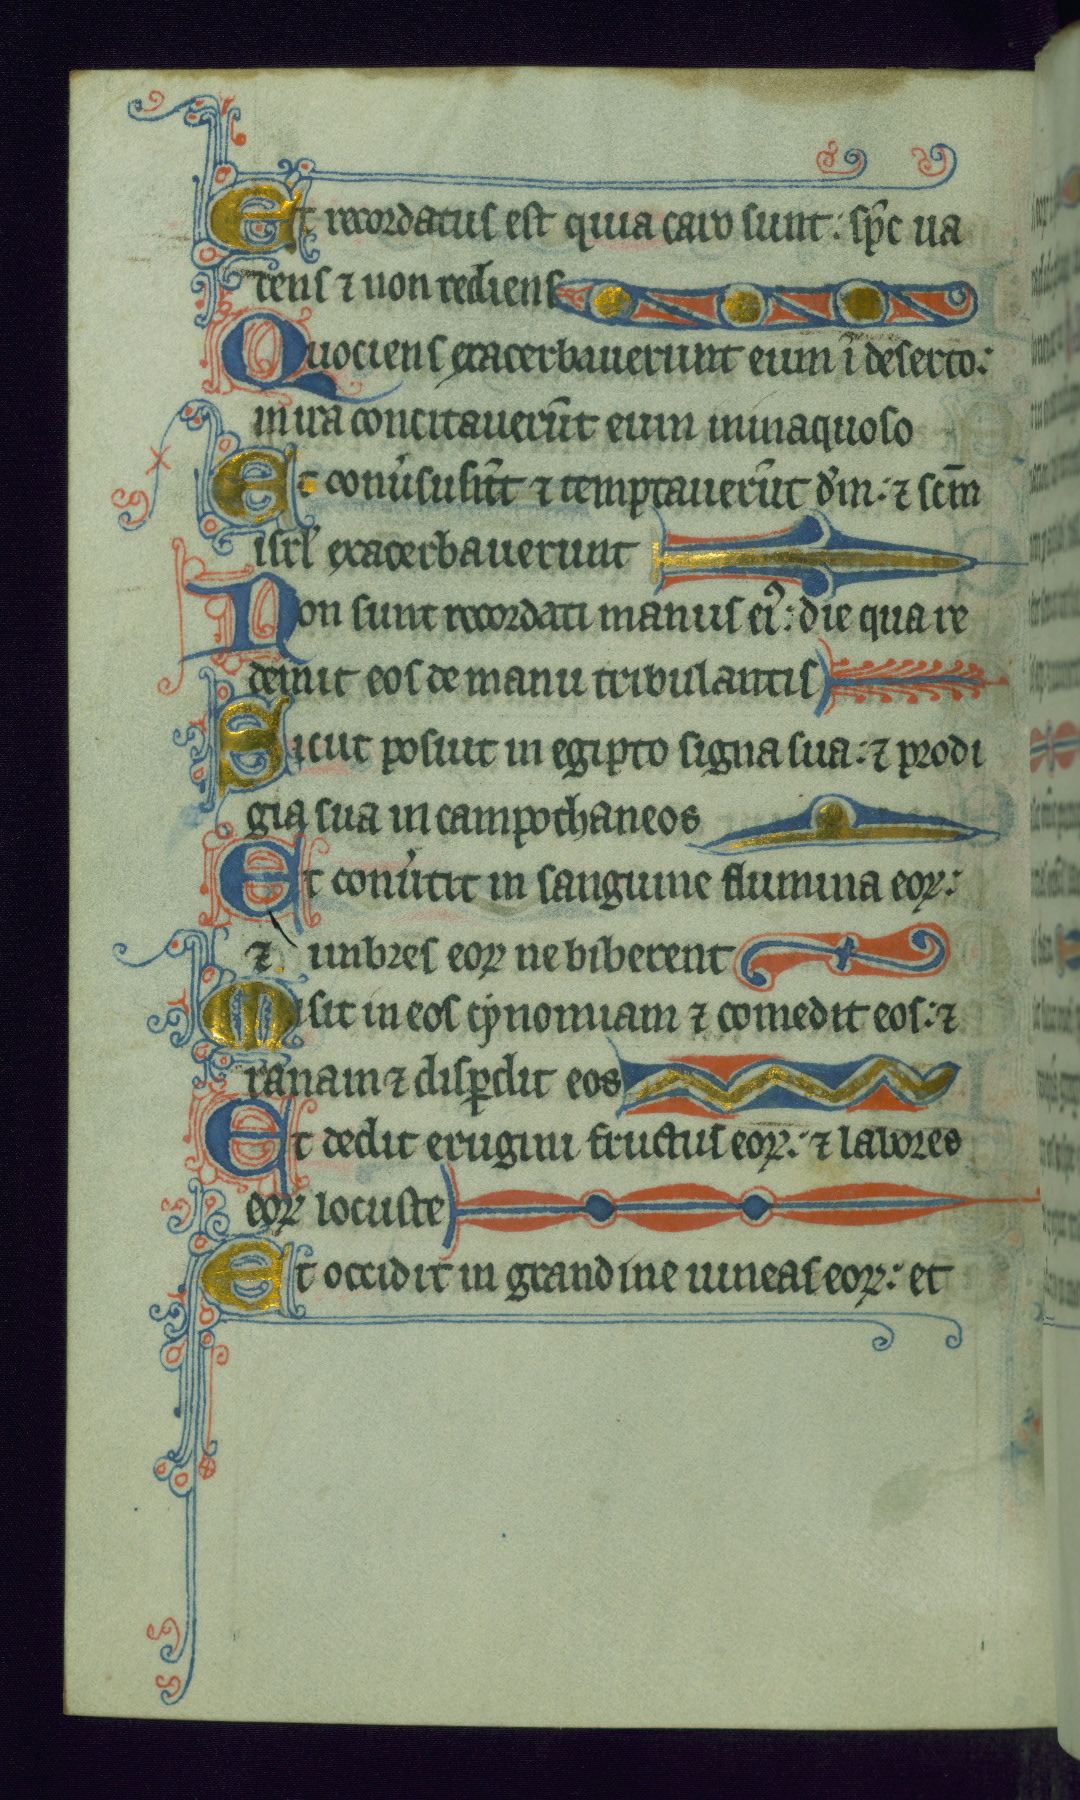 Et recordatus est quia caro sunt: sp̄c ua
dens ⁊ non rediens
Quociens exacerbauerunt eum ī deserto:
in ira concitauerūt eum in inaquoso
Et conu̾si sūt ⁊ temptauerūt dm̄: ⁊ scm̄
isrl̾ exacerbauerunt
Non sunt recordati manus eiꝰ: die qua re
demit eos de manu tribulantis
Sicut posuit in egipto signa sua: ⁊ prodi
gia sua in campo thaneos
Et conu̾tit in sanguine flumina eoꝝ:
⁊ imbres eoꝝ ne biberent
Misit in eos cynomiam ⁊ comedit eos: ⁊
ranam ⁊ disꝑdit eos
Et dedit erugini fructus eoꝝ: ⁊ labores
eoꝝ locuste
Et occidit in grandine uineas eoꝝ: et